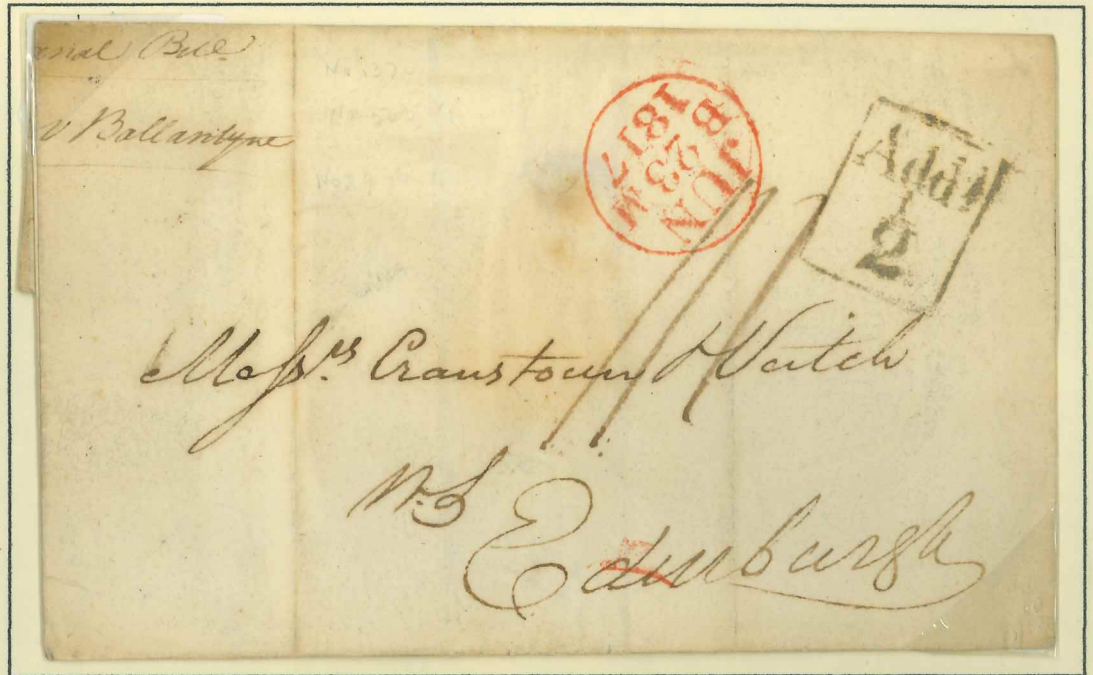 Bill
v Ballantyne
B JUN M
23
1817
Addl
1
2
Messrs. Cranstoun & Veitch
W.S
Edinburgh